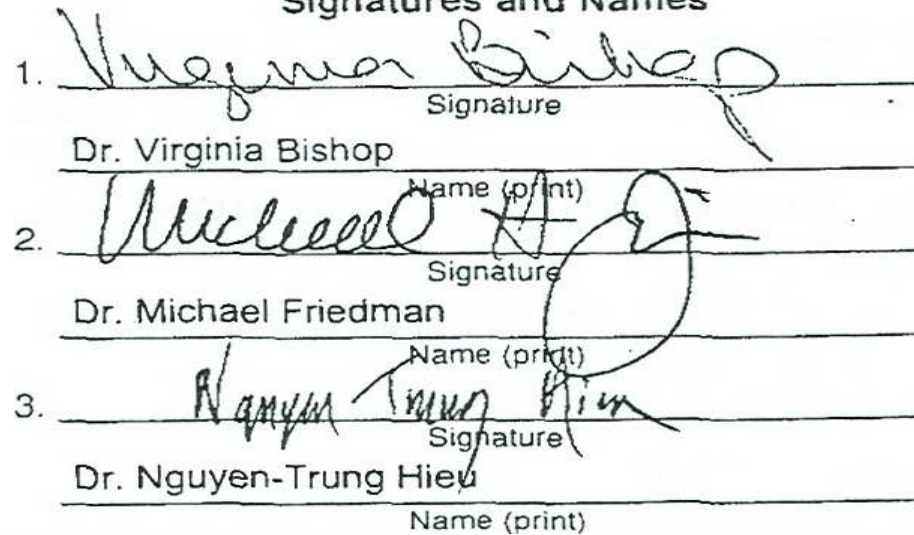 Signatures and Names
1. Virginia Bishop
Signature
Dr. Virginia Bishop
Name (print)
2. Michael A
Signature
Dr. Michael Friedman
Name (print)
3. Nguyen Trung Hieu
Signature
Dr. Nguyen-Trung Hieu
Name (print)